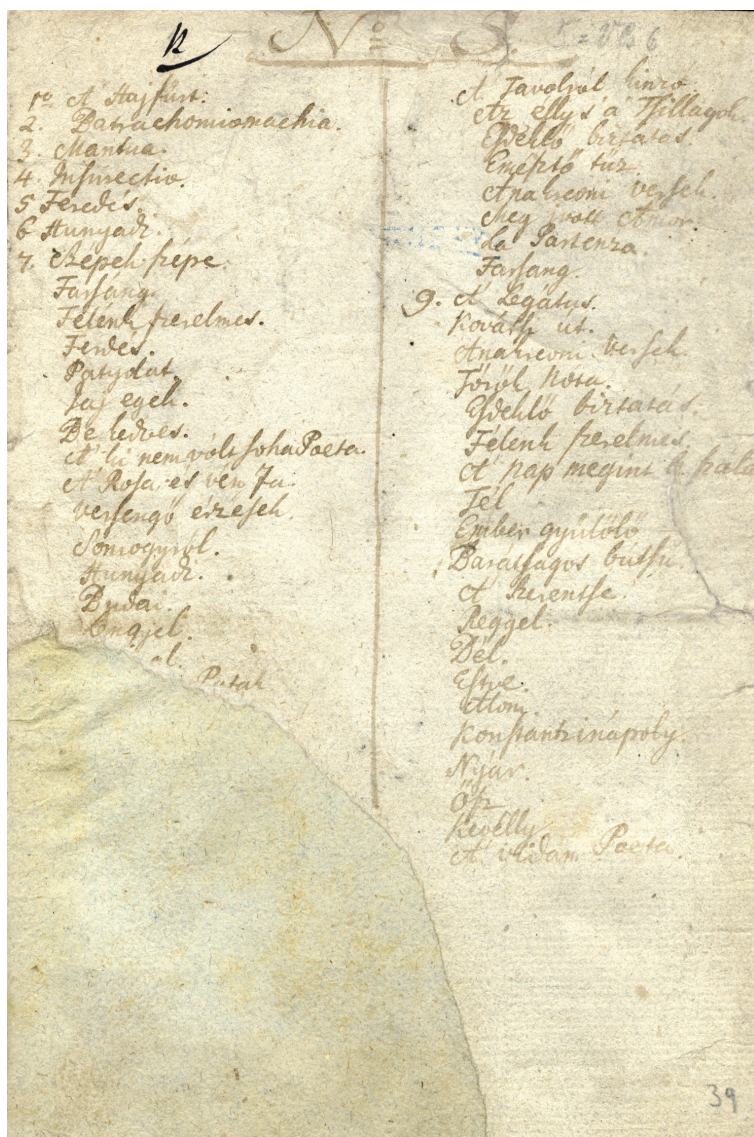 12
No 8.
1o A' Hajfürt:
2. Batrachomiomachia.
3. Mantua.
4. Insurectio.
5 Feredes.
6 Hunyadi.
7. Szépek szépe.
Farsang.
Félénk szerelmes.
Ferdes.
Patyolat.
Jaj egek.
Be kedves.
A' ki nem vólt soha Poeta.
A' Rosa, és ven Fa.
Versengő érzések.
Somogyról.
Hunyadi.
Budai.
Angjel.
Patak
A' Távolról kinzó
Az ellys a' Tsillagok
Esdeklő biztatás.
Emésztő tüz.
Anakreoni versek.
Meg Amor.
La Partenza.
Farsang.
9. A' Legátus.
Kováth út.
Anakreoni versek.
Főről Nóta.
Esdeklő biztatás.
Félénk szerelmes.
A' pap megint
Tél
Ember gyülölő
Barátságos bútsú.
A' Szerentse.
Reggel.
Dél.
Estve.
Álom.
Konstantzinápoly.
Nyár.
Ősz
Kevélly
A' vidám Poeta.
39